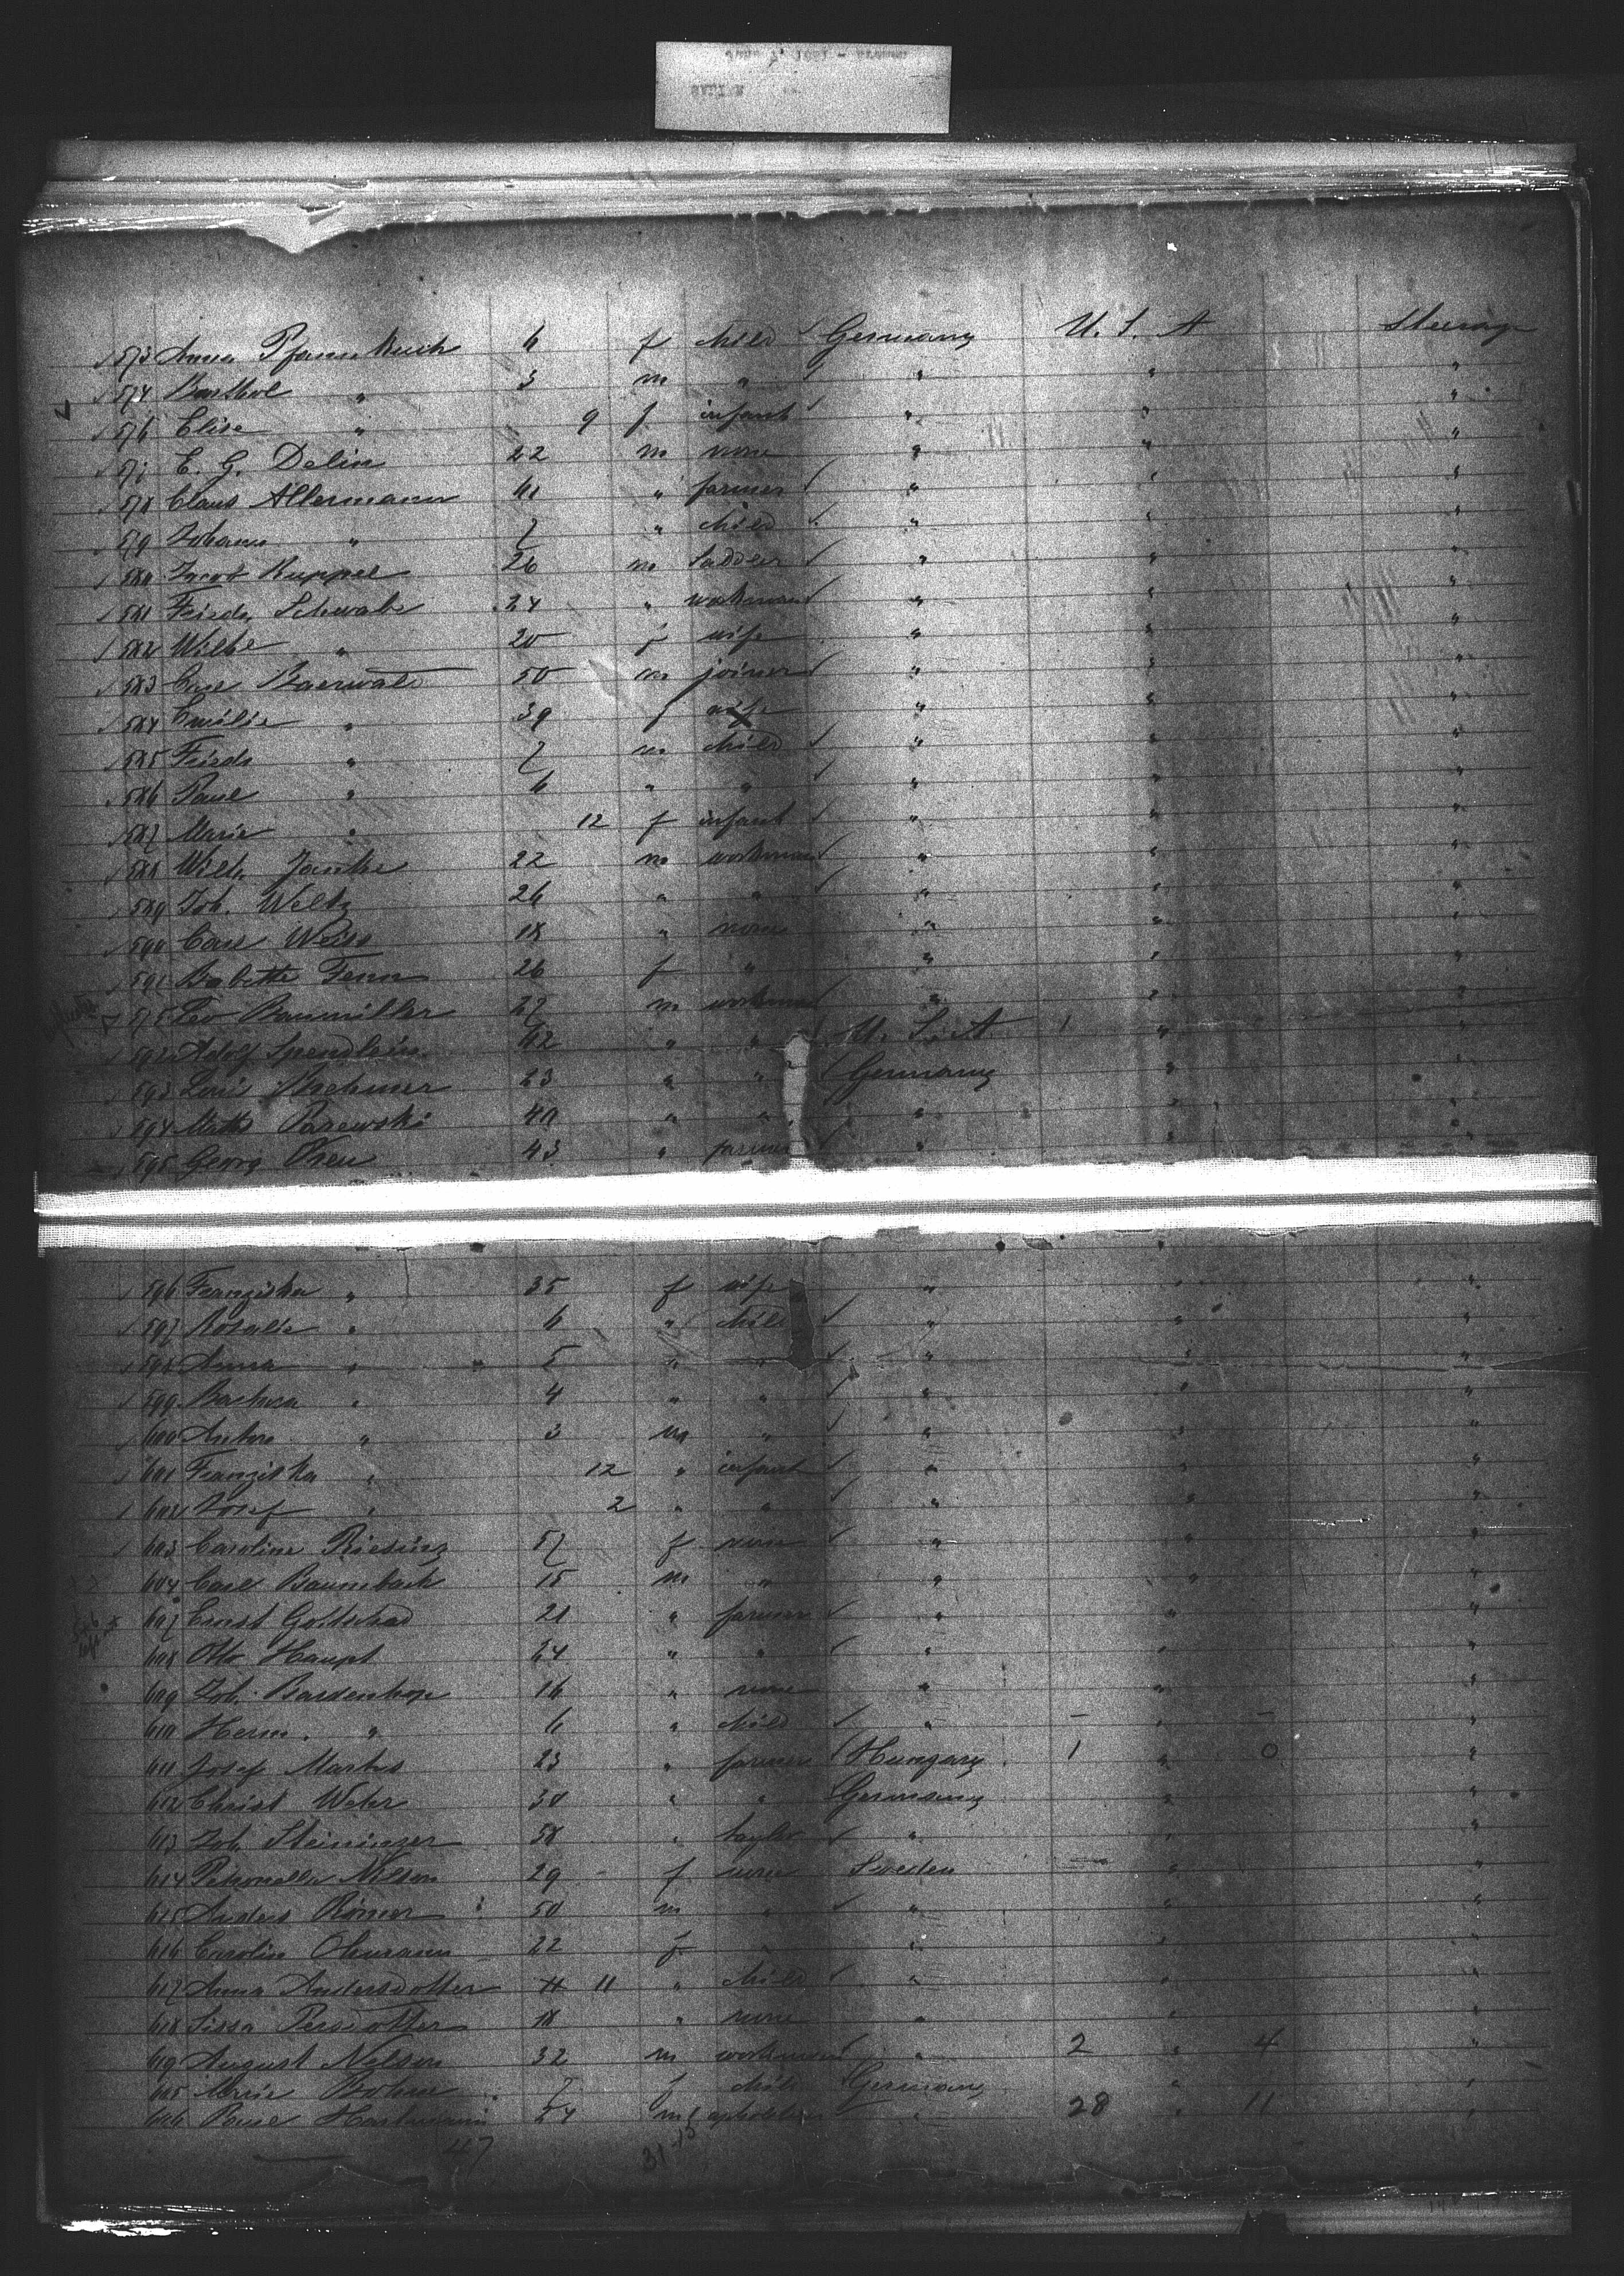 573 Anna Pfannkuch 6 f child Germany U. S. A Steerage
574 Barthol " 3 m " " " "
576 Elise " 9 f infant " " "
577 E. G. Delin 22 m none " " "
578 Claus Allermann 41 " farmer " " "
579 Johann " 7 " child " " "
580 Jacob Ruppel 26 m saddler " " "
581 Friedr. Schwabe 24 " workman " " "
582 Wilhe " 20 f wife " " "
583 Carl Baerwald 50 m joiner " " "
584 Emilie " 39 f wife " " "
585 Friedr " 7 m child " " "
586 Paul " 6 " " " " "
587 Marie " 12 f infant " " "
588 Wilh. Janke 22 m workman " " "
589 Joh. Weltz 26 " " " " "
590 Carl Weiss 18 " none " " "
591 Babette Fenn 26 f " " " "
575 Leo Baumiller 27 m workman " " "
592 Adolf Spendlein 42 " " U. S. A 1 " "
593 Louis 23 " " Germany " "
594 Math Parewski 40 " " " " "
595 Georg 43 " farmer " " "
596 Franziska " 35 f wife " " "
597 Rosalie " 6 " child " " "
598 Anna " 5 " " " " "
599 Barbara " 4 " " " " "
600 Anton " 3 m " " " "
601 Franziska " 12 " infant " " "
602 Josef " 2 " " " " "
603 Caroline 57 f none " " "
604 Carl Baumbach 15 m " " " "
607 Ernst Gottschad 21 " farmer " " "
608 Otto Haupt 24 " " " " "
609 Joh. Bardenhop 16 " none " " "
610 Herm. " 6 " child " – " – "
611 Josef Martus 23 " farmer Hungary 1 " 0 "
612 Christ Weber 30 " " Germany " "
613 Joh. Steininger 58 " taylor " " "
614 Petronella Nilson 29 f none Sweden – " "
615 Anders Römer 50 m " " " "
616 Carolin Ohmann 22 f " " " "
617 Anna Andersdotter 11 " child " " "
618 Sissa Persdotter 18 " none " " "
619 August Nelson 32 m workman " 2 " 4 "
605 Marie Böhm 7 f child Germany " "
606 Paul Hartmann 24 m upholsterer " 28 " 11 "
47 31-15